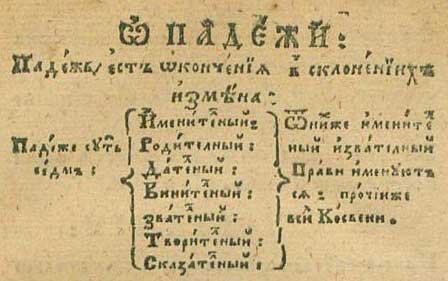 Ѡ ПАДЕ́ЖИ:
Паде́жъ/ єстъ ѡконче́нїѧ в склоне́нїихъ
измѣ́на:
Паде́же сꙋ́ть
се́дмъ:
Имени́теⷧный:
Роди́телный:
Да́теⷧный:
Вини́теⷧный:
Зва́теⷧный:
Твори́теⷧный:
Сказа́теⷧный:
Ѿ ниⷯже имени́теⷧ
ный и зва́телный
Пра́ви именꙋ́ют
сѧ: про́чїиже
вси́ Ко́свенни.